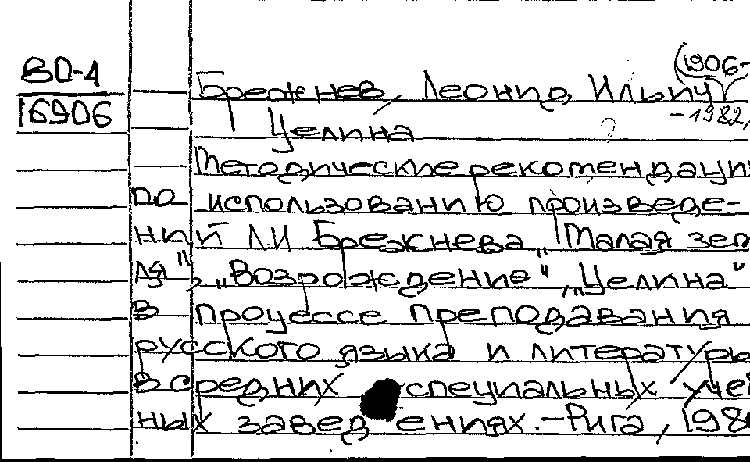 (1906-
ВО-4
Брежнев, Леонид Ильич
16906
-1982,
Целина
Методические рекомендации
по использованию произведе-
ний Л И Брежнева „Малая зем
ля", „Возрождение", „Целина"
в процессе преподавания
русского языка и литературы
в средних специальных учеб
ных заведениях. - Рига, 198